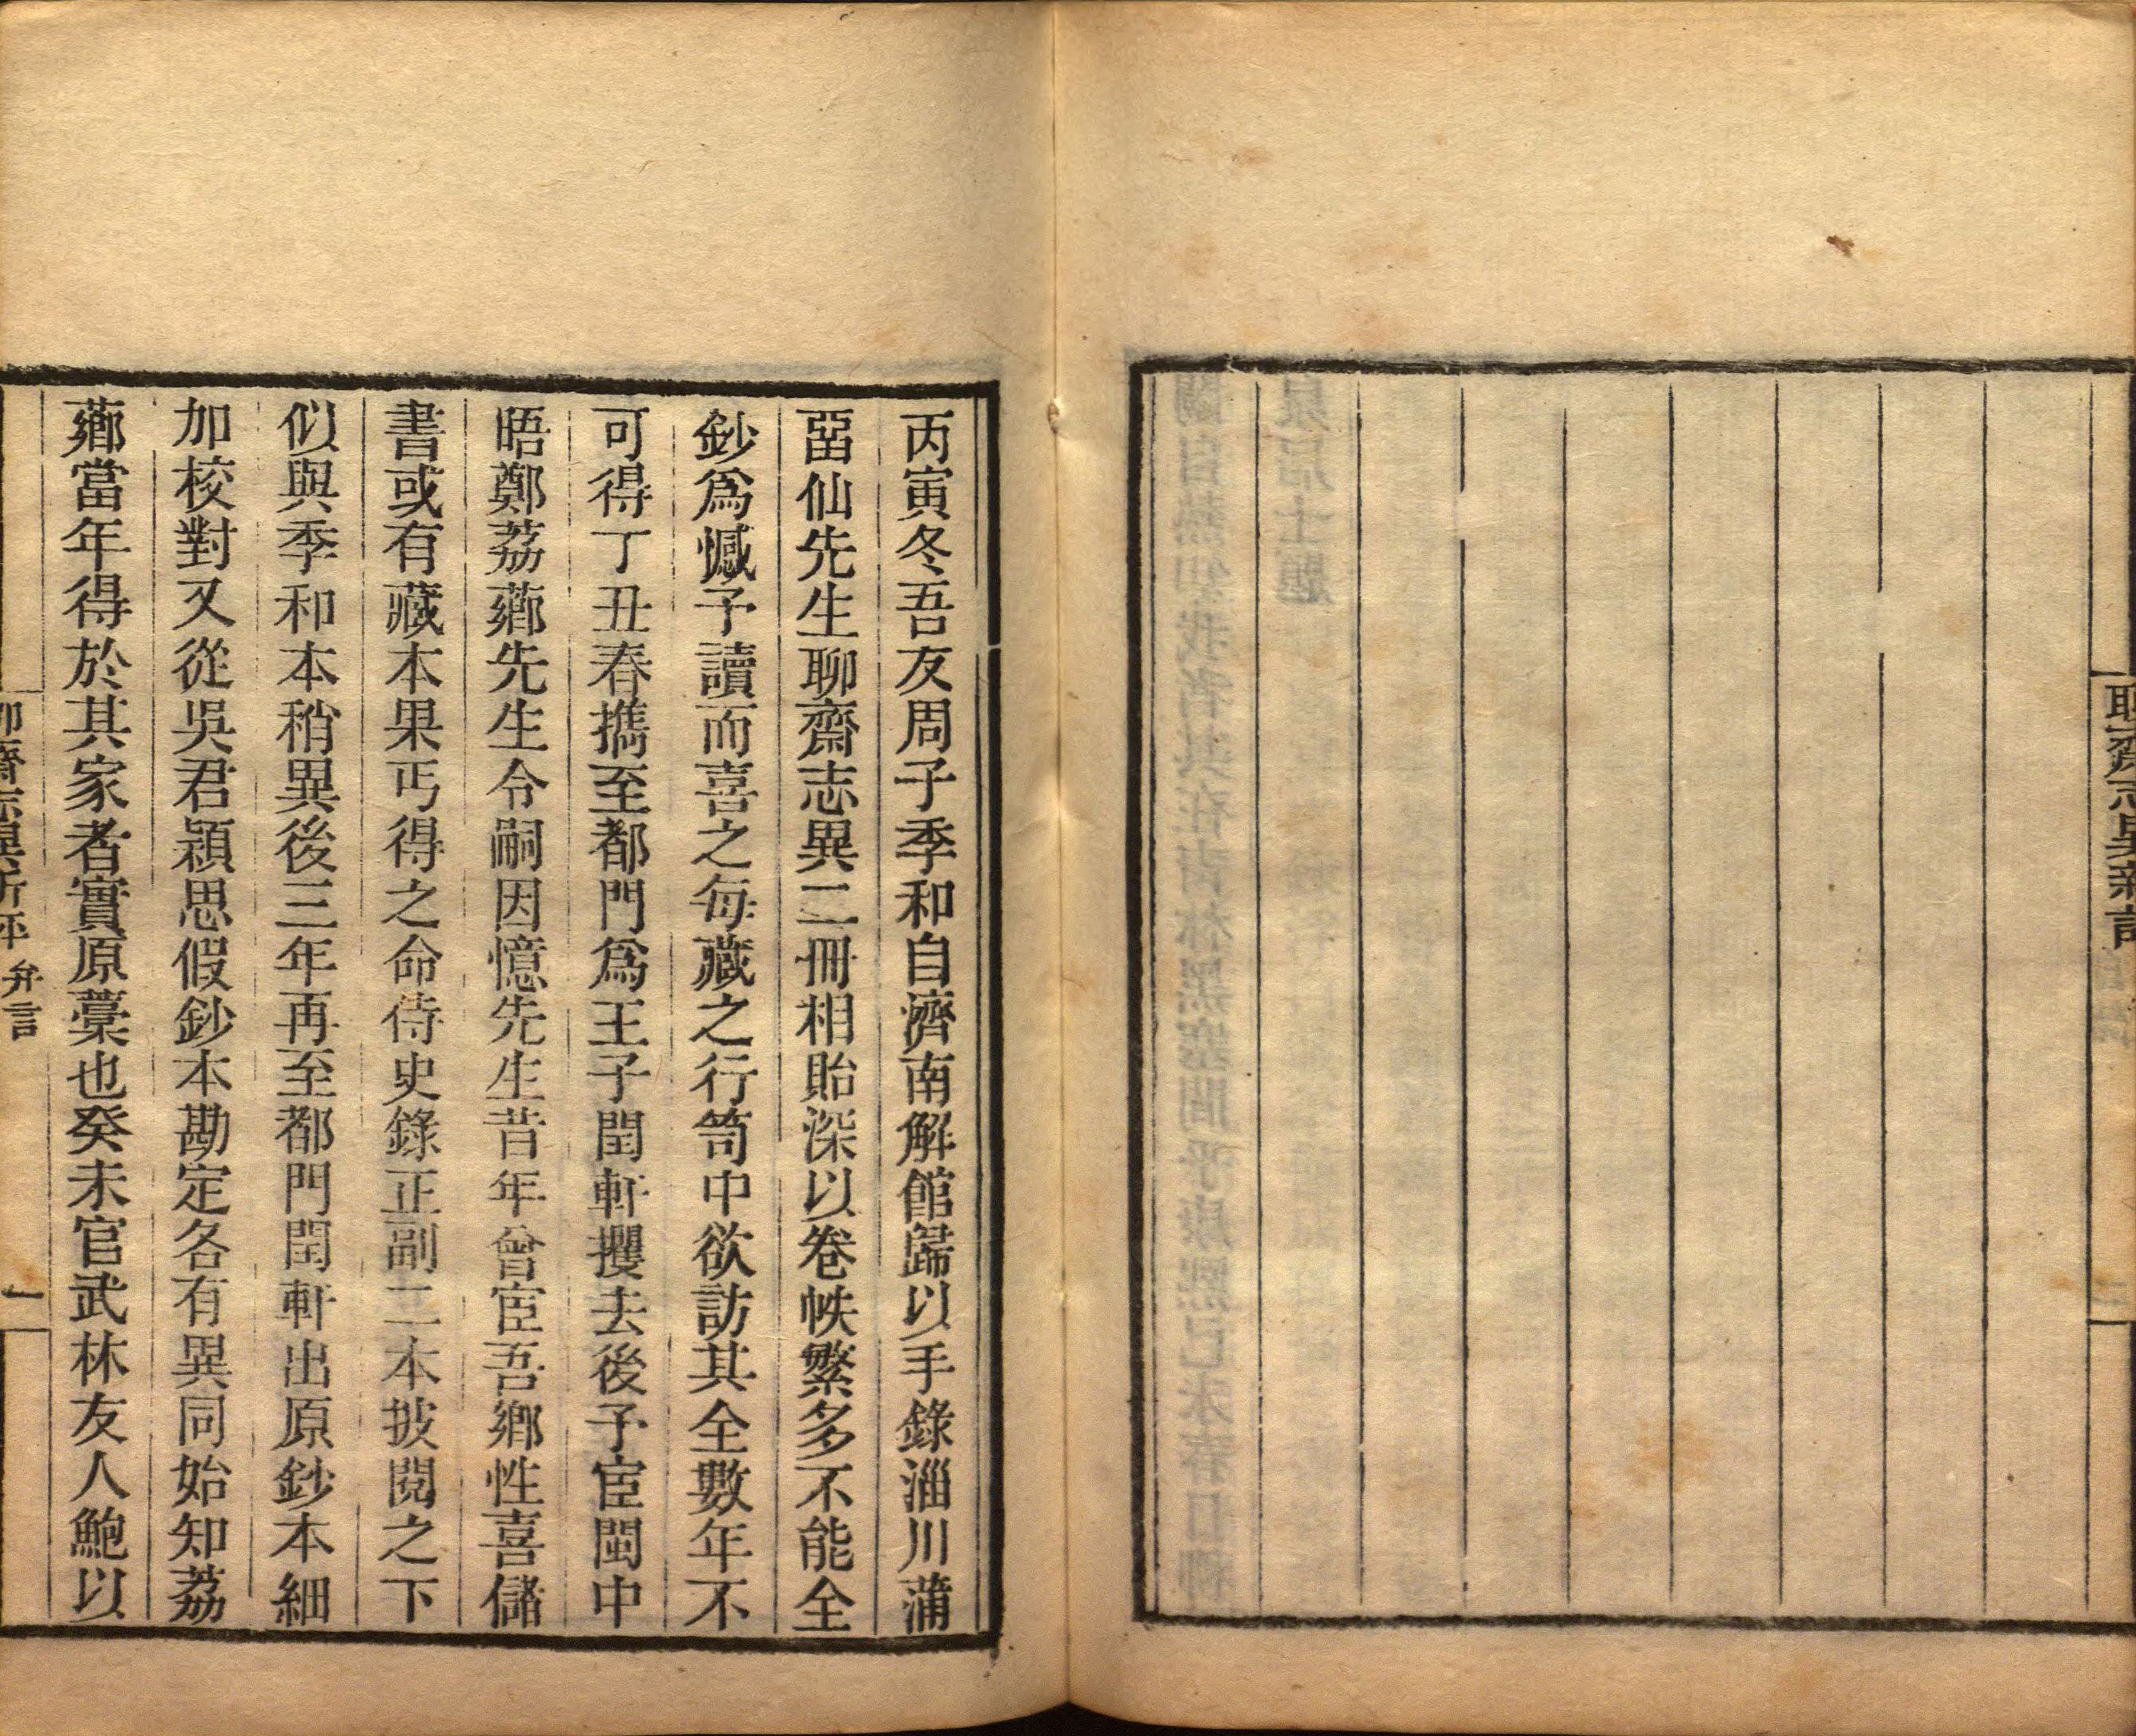 聊齋志異新評
丙寅冬吾友周子季和自濟南解館歸以手錄淄川蒲
畱仙先生聊齋志異二冊相貽深以卷帙繁多不能全
鈔爲憾予讀而喜之每藏之行笥中欲訪其全數年不
可得丁丑春攜至都門爲王子閏軒攫去後予宦閩中
晤鄭荔薌先生令嗣因憶先生昔年曾宦吾鄉性喜儲
書或有藏本果丐得之命侍史錄正副二本披閱之下
似與季和本稍異後三年再至都門閏軒出原鈔本細
加校對又從吳君潁思假鈔本勘定各有異同始知荔
薌當年得於其家者實原藁也癸未官武林友人鮑以
聊齋志異新評 弁言 一